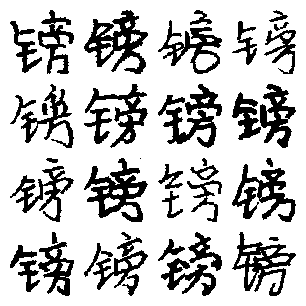 镑镑镑镑
镑镑镑镑
镑镑镑镑
镑镑镑镑